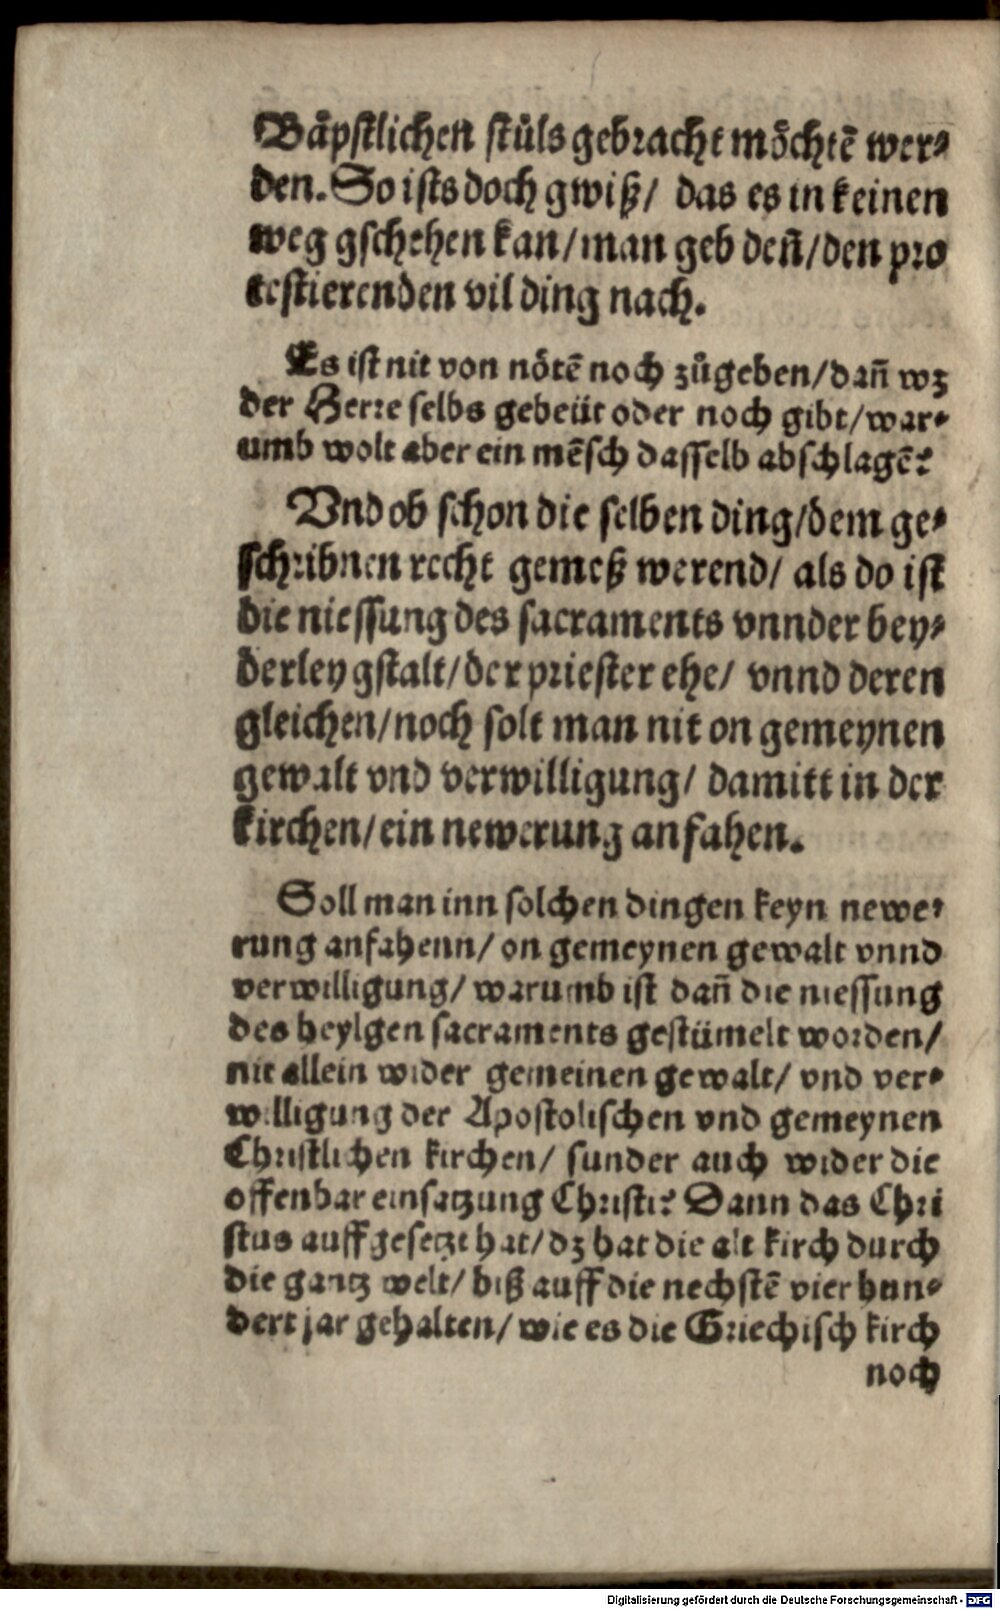 Baͤpstlichen stuͤls gebracht moͤchtẽ wer⸗
den. So ists doch gwiß/ das es in keinen
weg gschehen kan/ man geb deñ/ den pro
testierenden vil ding nach.
Es ist nit von noͤtẽ noch zůgeben/ dañ wz
der Herre selbs gebeüt oder noch gibt/ war⸗
umb wolt aber ein mẽsch dasselb abschlagẽ?
Vnd ob schon die selben ding/ dem ge⸗
schribnen recht gemeß werend/ als do ist
die niessung des sacraments vnnder bey⸗
derley gstalt/ der priester ehe/ vnnd deren
gleichen/ noch solt man nit on gemeynen
gewalt vnd verwilligung/ damitt in der
kirchen/ ein newerung anfahen.
Soll man inn solchen dingen keyn newe⸗
rung anfahenn/ on gemeynen gewalt vnnd
verwilligung/ warumb ist dañ die niessung
des heylgen sacraments gestümelt worden/
nit allein wider gemeinen gewalt/ vnd ver⸗
willigung der Apostolischen vnd gemeynen
Christlichen kirchen/ sunder auch wider die
offenbar einsatzung Christi? Dann das Chri
stus auff gesetzt hat/ dz hat die alt kirch durch
die gantz welt/ biß auff die nechstẽ vier hun⸗
dert jar gehalten/ wie es die Griechisch kirch
noch
Digitalisierung gefördert durch die Deutsche Forschungsgemeinschaft - DFG